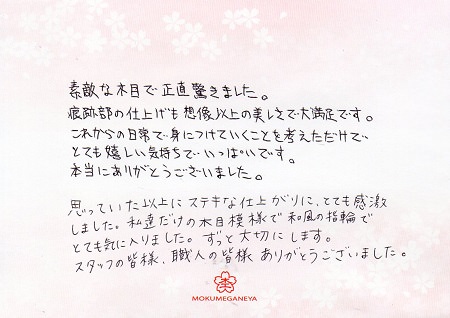 素敵な木目で正直驚きました。
痕跡部の仕上げも想像以上の美しさで大満足です。
これからの日常で身につけていくことを考えただけで
とても嬉しい気持ちでいっぱいです。
本当にありがとうございました。
思っていた以上にステキな仕上がりに、とても感激
しました。私達だけの木目模様で和風の指輪で
とても気に入りました。ずっと大切にします。
スタッフの皆様、職人の皆様ありがとうございました。
MOKUMEGANEYA